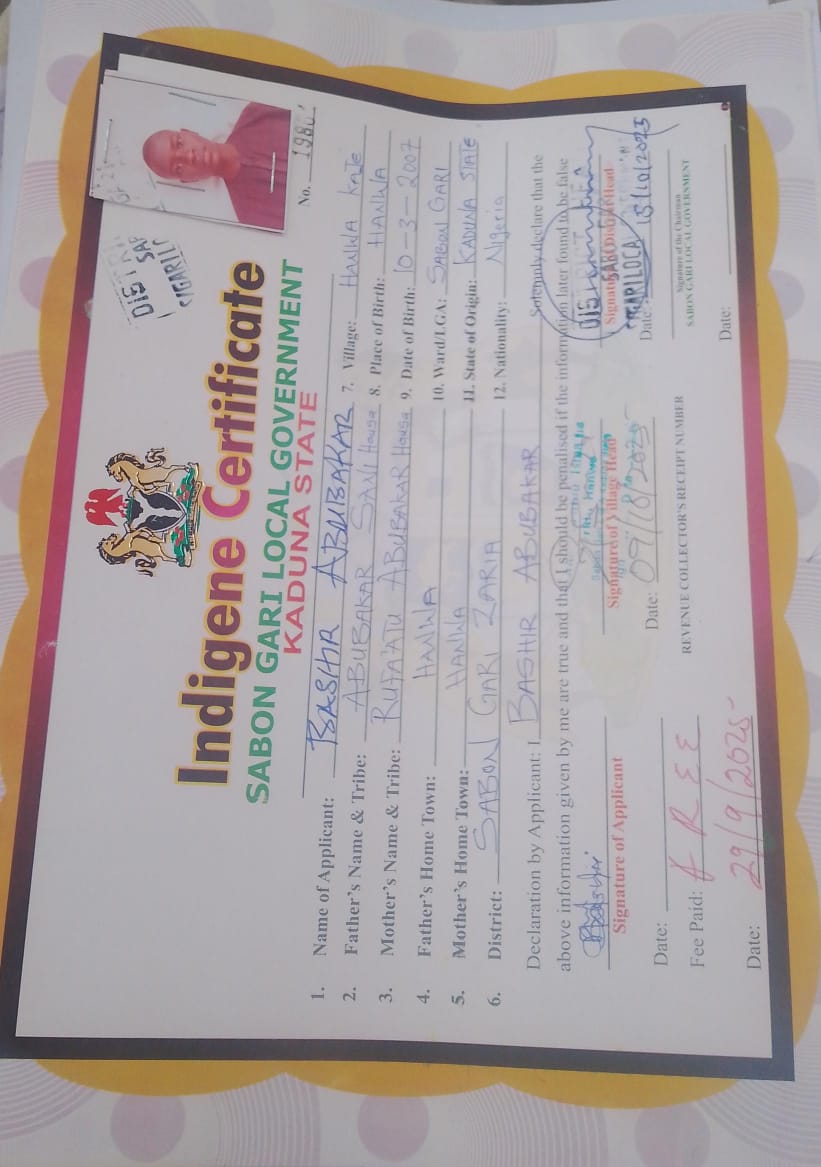 Indigene Certificate
SABON GARI LOCAL GOVERNMENT
KADUNA STATE
No. 1980
1. Name of Applicant: BASHIR ABUBAKAR
2. Father's Name & Tribe: ABUBAKAR SANI Hausa
3. Mother's Name & Tribe: RUFA'ATU ABUBAKAR Hausa
4. Father's Home Town: HANWA
5. Mother's Home Town: HANWA
6. District: SABON GARI ZARIA
7. Village: HANWA KAJE
8. Place of Birth: HANWA
9. Date of Birth: 10-3-2007
10. Ward/LGA: SABON GARI
11. State of Origin: KADUNA STATE
12. Nationality: Nigeria
Declaration by Applicant: I BASHIR ABUBAKAR Solemnly declare that the
above information given by me are true and that I should be penalised if the information later found to be false
Signature of Applicant
Signature of Village Head
Signature of District Head
Date:
Date: 09/10/2025
Date: 15/10/2025
Fee Paid: FREE
REVENUE COLLECTOR'S RECEIPT NUMBER
Signature of the Chairman
SABON GARI LOCAL GOVERNMENT
Date: 29/9/2025
Date: